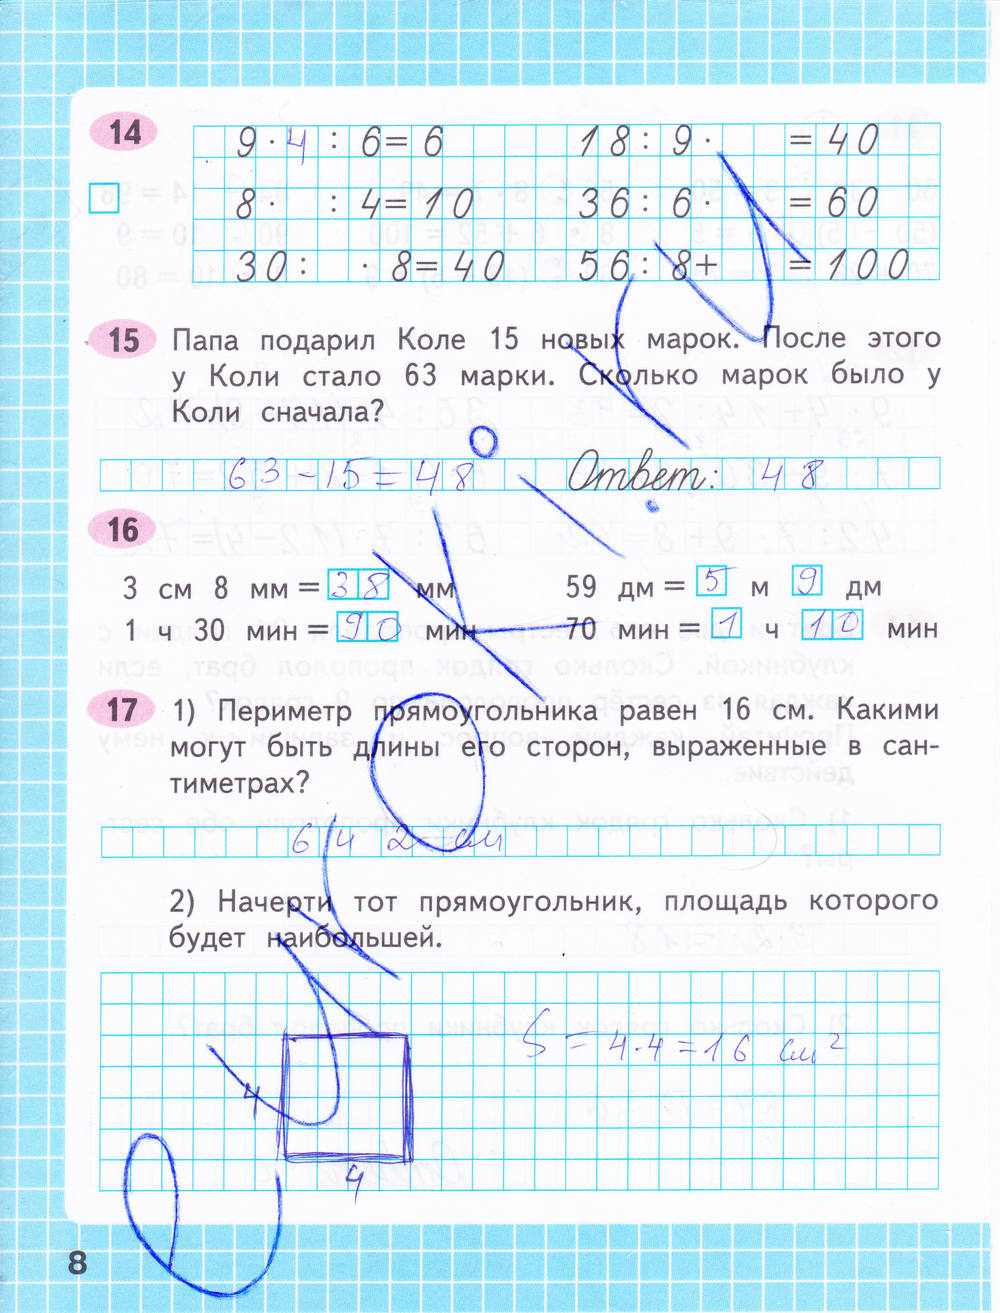 14
9 · 4 : 6 = 6 18 : 9 · = 40
8 · : 4 = 10 36 : 6 · = 60
30 : · 8 = 40 56 : 8 + = 100
15 Папа подарил Коле 15 новых марок. После этого
у Коли стало 63 марки. Сколько марок было у
Коли сначала?
63 - 15 = 48 Ответ: 48
16
3 см 8 мм = 38 мм 59 дм = 5 м 9 дм
1 ч 30 мин = 90 мин 70 мин = 1 ч 10 мин
17 1) Периметр прямоугольника равен 16 см. Какими
могут быть длины его сторон, выраженные в сан-
тиметрах?
6 4 2 см
2) Начерти тот прямоугольник, площадь которого
будет наибольшей.
S = 4 · 4 = 16 см²
4
4
8